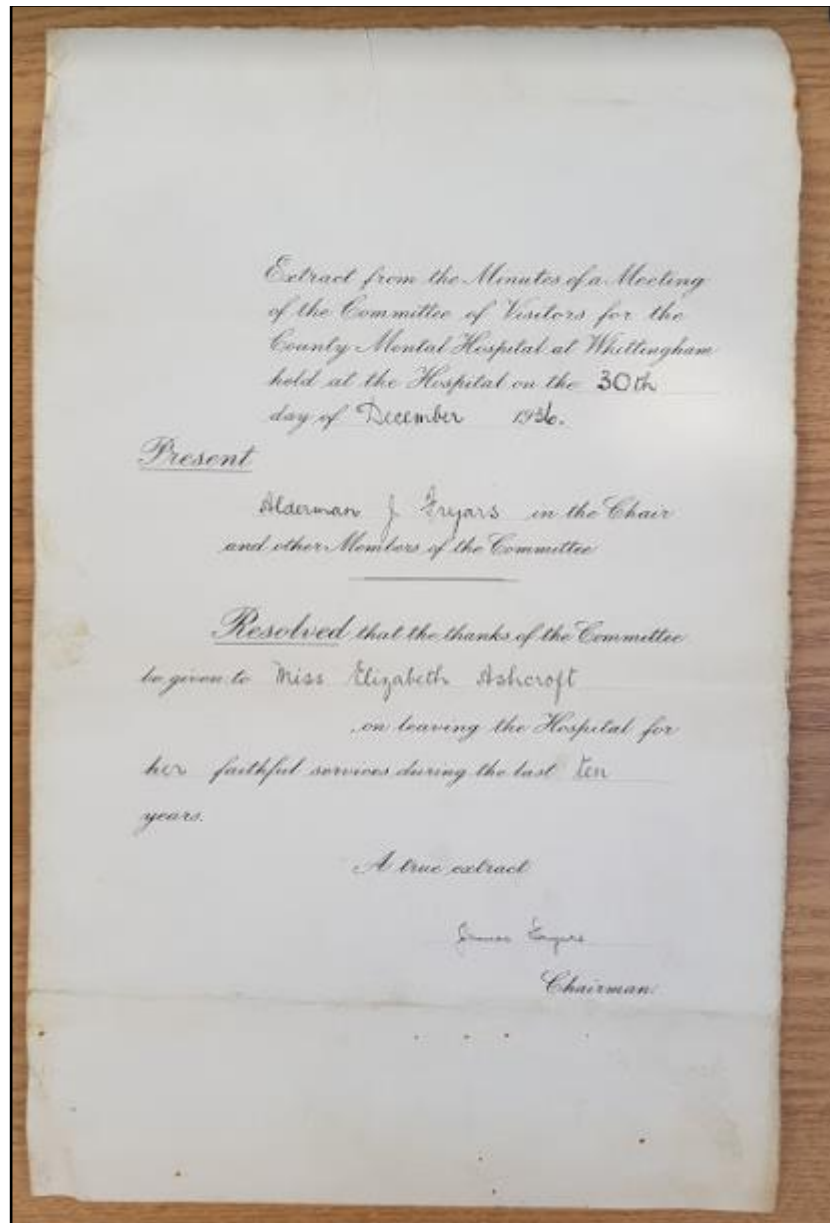 Extract from the Minutes of a Meeting
of the Committee of Visitors for the
County Mental Hospital at Whittingham
held at the Hospital on the 30th
day of December 1936.
Present
Alderman J. Fryars in the Chair
and other Members of the Committee
Resolved that the thanks of the Committee
be given to Miss Elizabeth Ashcroft
on leaving the Hospital for
her faithful services during the last ten
years.
A true extract
James Fryars
Chairman.